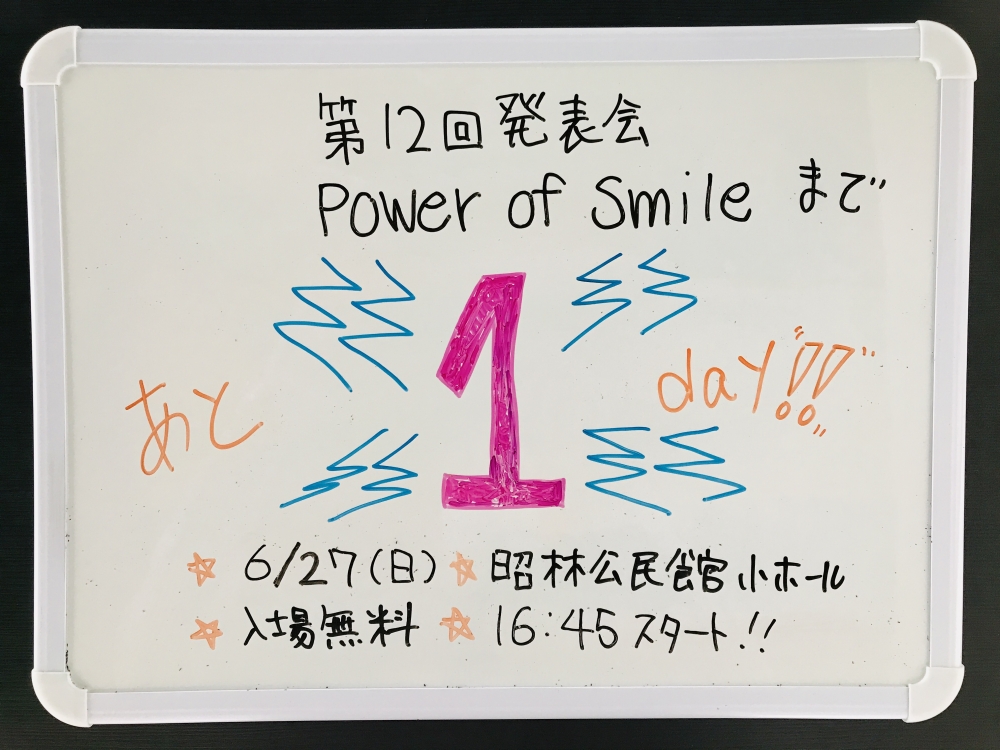 第12回発表会
Power of Smile まで
あと 1 day!!
☆ 6/27(日) ☆ 昭林公民館 小ホール
☆ 入場無料 ☆ 16:45 スタート!!